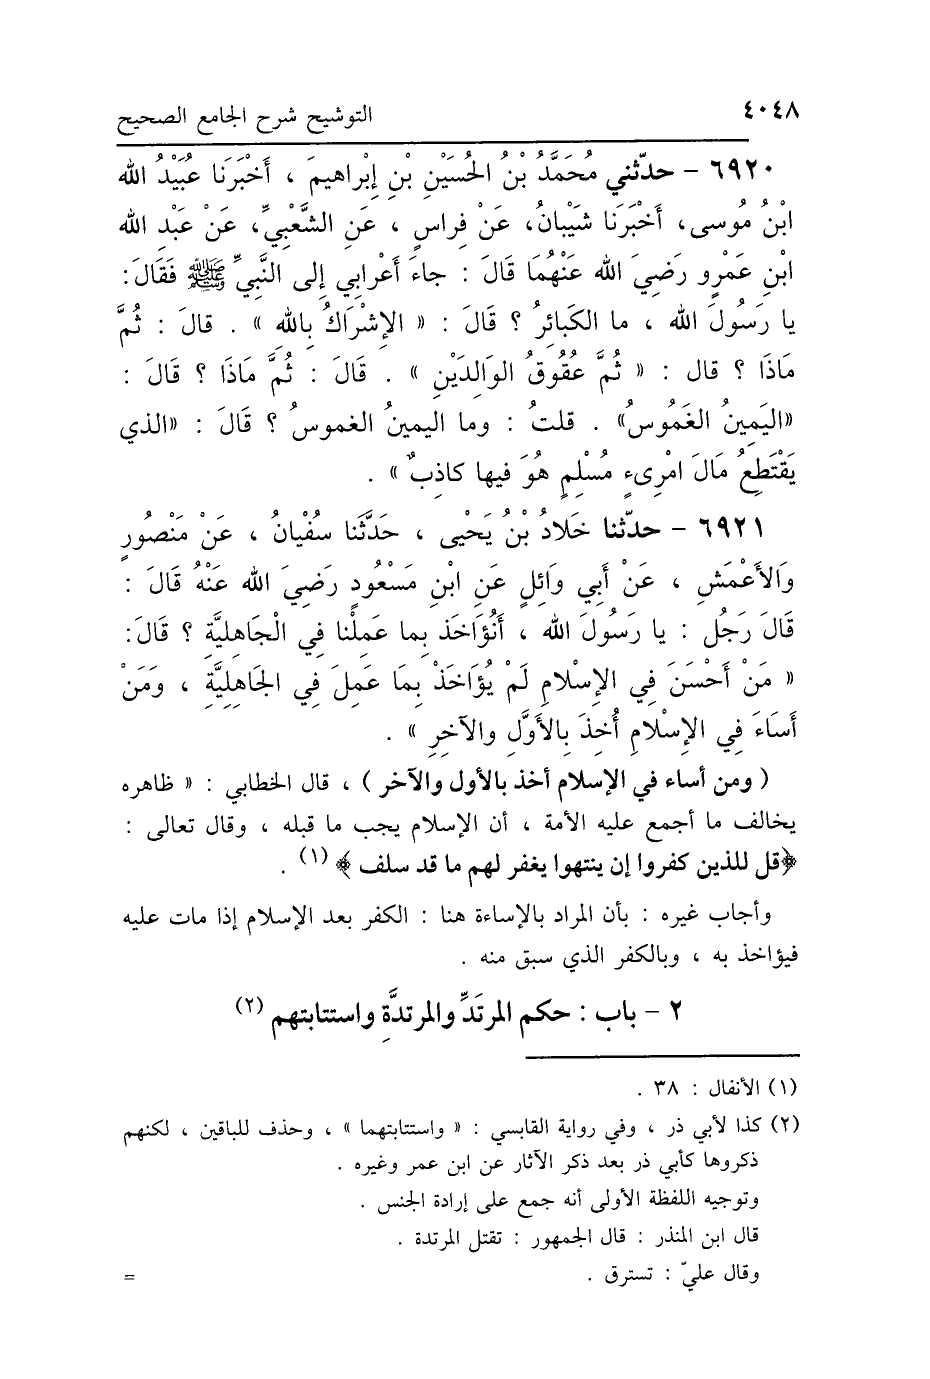 ٤٠٤٨ التوشيح شرح الجامع الصحيح
٦٩٢٠ - حدّثني مُحَمَّدُ بْنُ الحُسَيْنِ بْنِ إِبْراهيمَ ، أَخْبَرَنَا عُبَيْدُ الله
ابْنُ مُوسى، أَخْبَرَنَا شَيْبانُ، عَنْ فِراسٍ ، عَنِ الشَّعْبِيِّ، عَنْ عَبْدِ الله
ابْنِ عَمْرٍو رَضِيَ الله عَنْهُمَا قَالَ : جاءَ أَعْرابي إلى النَّبِيِّ ﷺ فَقَالَ:
يا رَسُولَ الله ، ما الكَبائِرُ ؟ قَالَ : « الإِشْرَاكُ بِاللهِ » . قالَ : ثُمَّ
مَاذَا ؟ قال : « ثُمَّ عُقُوقُ الوَالِدَيْنِ » . قَالَ : ثُمَّ مَاذَا ؟ قَالَ :
«اليَمِينُ الغَمُوسُ» . قلتُ : وما اليمينُ الغموسُ ؟ قَالَ : «الذي
يَقْتَطِعُ مَالَ امْرِىءٍ مُسْلِمٍ هُوَ فيها كاذِبٌ » .
٦٩٢١ - حدّثنا خَلادُ بْنُ يَحْيى ، حَدَّثَنا سُفْيانُ ، عَنْ مَنْصُورٍ
وَالأَعْمَشِ ، عَنْ أَبِي وَائِلٍ عَنِ ابْنِ مَسْعُودٍ رَضِيَ الله عَنْهُ قَالَ :
قَالَ رَجُل : يا رَسُولَ الله ، أَنُؤَاخَذ بِما عَمِلْنا فِي الْجَاهِليَّةِ ؟ قَالَ:
« مَنْ أَحْسَنَ فِي الإِسْلامِ لَمْ يُؤَاخَذْ بِمَا عَمِلَ فِي الجَاهِلِيَّةِ ، وَمَنْ
أَسَاءَ فِي الإِسْلامِ أُخِذَ بِالأَوَّلِ والآخِرِ » .
( ومن أساء في الإسلام أخذ بالأول والآخر ) ، قال الخطابي : « ظاهره
يخالف ما أجمع عليه الأمة ، أن الإسلام يجب ما قبله ، وقال تعالى :
﴿قل للذين كفروا إن ينتهوا يغفر لهم ما قد سلف ﴾ (١) .
وأجاب غيره : بأن المراد بالإساءة هنا : الكفر بعد الإسلام إذا مات عليه
فيؤاخذ به ، وبالكفر الذي سبق منه .
٢ - باب : حكم المرتَدِّ والمرتدَّةِ واستتابتهم (٢)
(١) الأنفال : ٣٨ .
(٢) كذا لأبي ذر ، وفي رواية القابسي : « واستتابتهما » ، وحذف للباقين ، لكنهم
ذكروها كأبي ذر بعد ذكر الآثار عن ابن عمر وغيره .
وتوجيه اللفظة الأولى أنه جمع على إرادة الجنس .
قال ابن المنذر : قال الجمهور : تقتل المرتدة .
وقال عليّ : تسترق . =